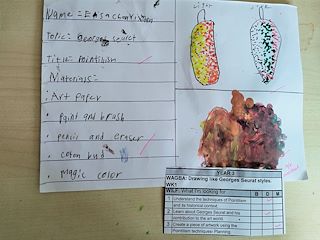 Name =
Topic: Georges seurat
Title: Pointilism
Materials:-
Art paper
paint and brush
pencil and eraser
coton bud
magic color
YEAR 3
WAGBA: Drawing like Georges Seurat styles.
WK1
WILF: What I'm looking for B D M
1 Understand the techniques of Pointilism and its historical context
2 Learn about Georges Seurat and his contribution to the art world
3 Create a piece of artwork using the Pointilism techniques- Planning